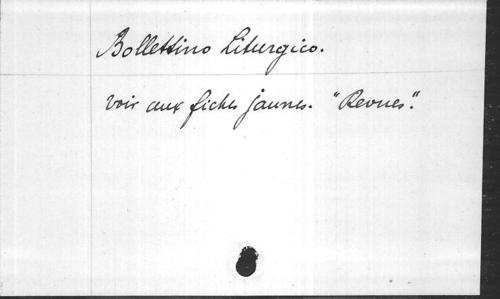 Bollettino Liturgico.
voir aux fiches jaunes. "Revues".